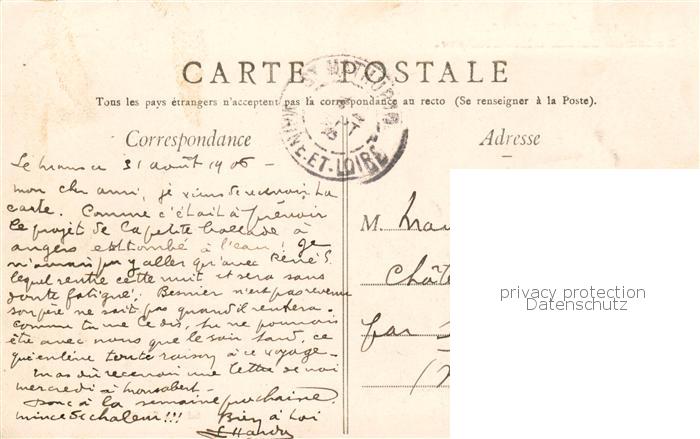 CARTE POSTALE
Tous les pays étrangers n'acceptent pas la correspondance au recto (Se renseigner à la Poste).
Correspondance
Adresse
MAINE-ET-LOIRE
31 août 1906 -
mon cher ami, je viens de recevoir ta
carte. Comme c'était à prévoir
le projet de la petite ballade à
angers est tombé à l'eau! Je
n'aurais pu y aller qu'avec René S.
lequel rentre cette nuit et sera sans
doute fatigué. Besnier n'est pas revenu
son père ne sait pas quand il rentrera.
comme tu me le dis, tu ne pourrais
être avec nous que le soir tard, ce
qui enlève toute raison à ce voyage -
as dû recevoir une lettre de moi
mercredi à
donc à la semaine prochaine
mince de chaleur!!! Bien à toi
Hardy
M.
par
privacy protection
Datenschutz